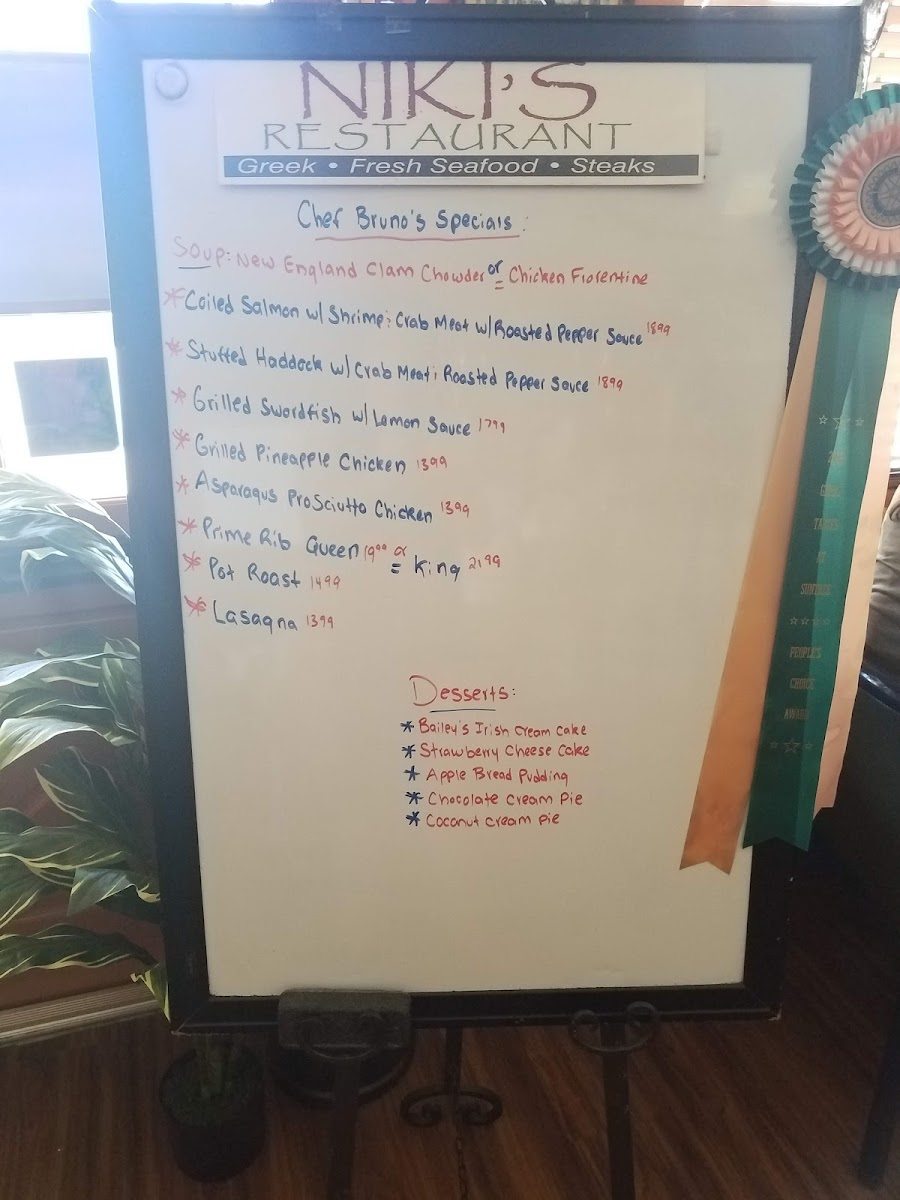 NIKI'S
RESTAURANT
Greek • Fresh Seafood • Steaks
Chef Bruno's Specials:
Soup: New England Clam Chowder or Chicken Florentine
* Coiled Salmon w/ Shrimp: Crab Meat w/ Roasted Pepper Sauce 1899
* Stuffed Haddock w/ Crab Meat: Roasted Pepper Sauce 1899
* Grilled Swordfish w/ Lemon Sauce 1799
* Grilled Pineapple Chicken 1399
* Asparagus Prosciutto Chicken 1399
* Prime Rib Queen 1900 or King 2199
* Pot Roast 1499
* Lasagna 1399
Desserts:
* Bailey's Irish Cream Cake
* Strawberry Cheese Cake
* Apple Bread Pudding
* Chocolate Cream Pie
* Coconut Cream Pie
PEOPLE'S
CHOICE
AWARD